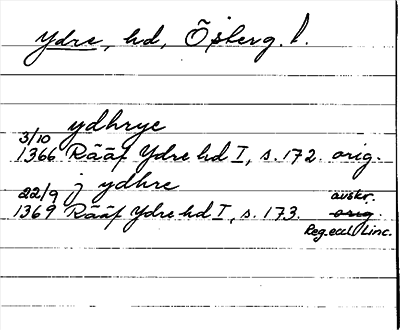 Ydre, hd, Österg. l.
ydhrye
3/10
1366 Rääf Ydre hd I, s. 172. orig.
22/9 j ydhre avskr.
1369 Rääf Ydre hd I, s. 173. orig.
Reg. eccl. Linc.